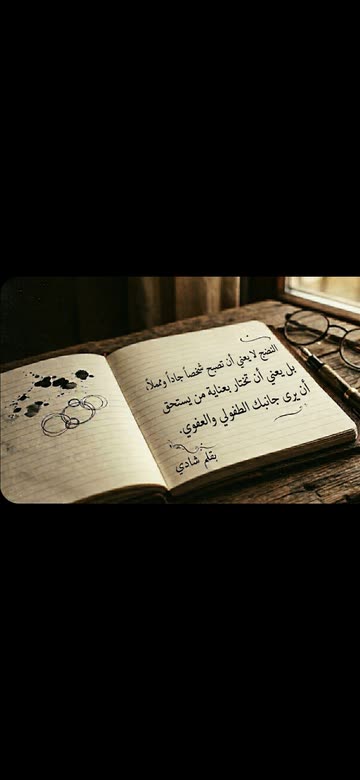 النضج لا يعني أن تصبح شخصاً جاداً ومملاً،
بل يعني أن تختار بعناية من يستحق
أن يرى جانبك الطفولي والعفوي.
بقلم شادي